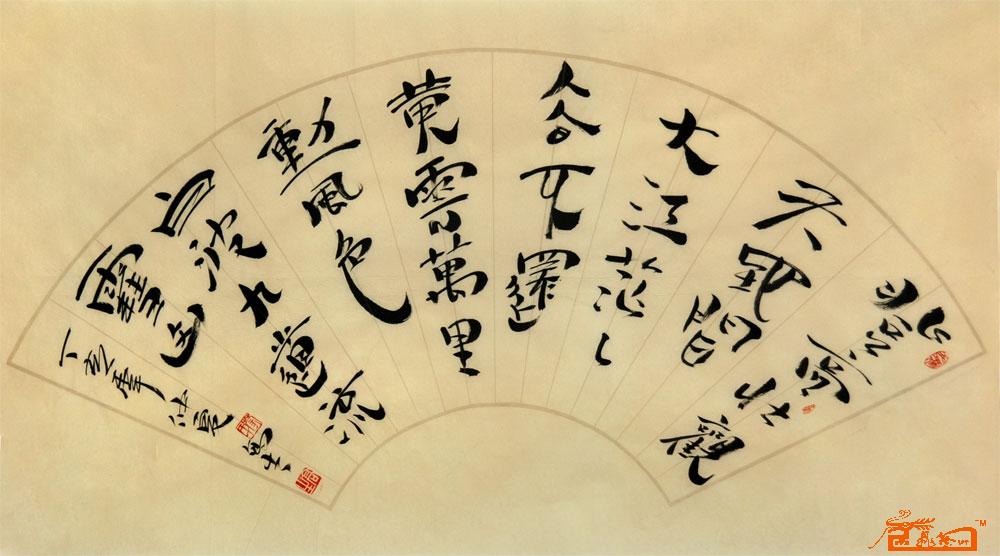 登高壮觀
天地間
大江茫々
去不還
黄雲萬里
動風色
白波九道流
雪山
丁亥年仲夏